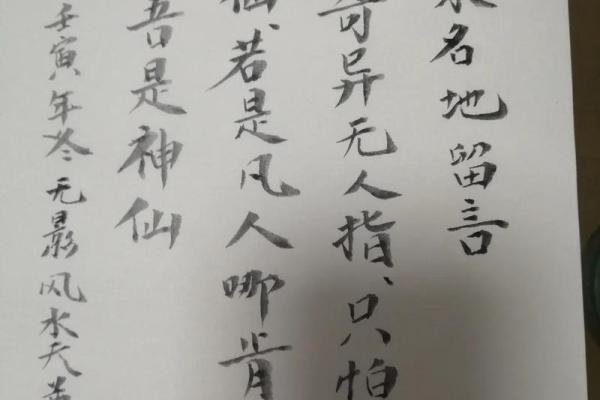 名地留言
奇异无人指、只怕
仙、若是凡人哪肯
吾是神仙
壬寅年冬无影风水天